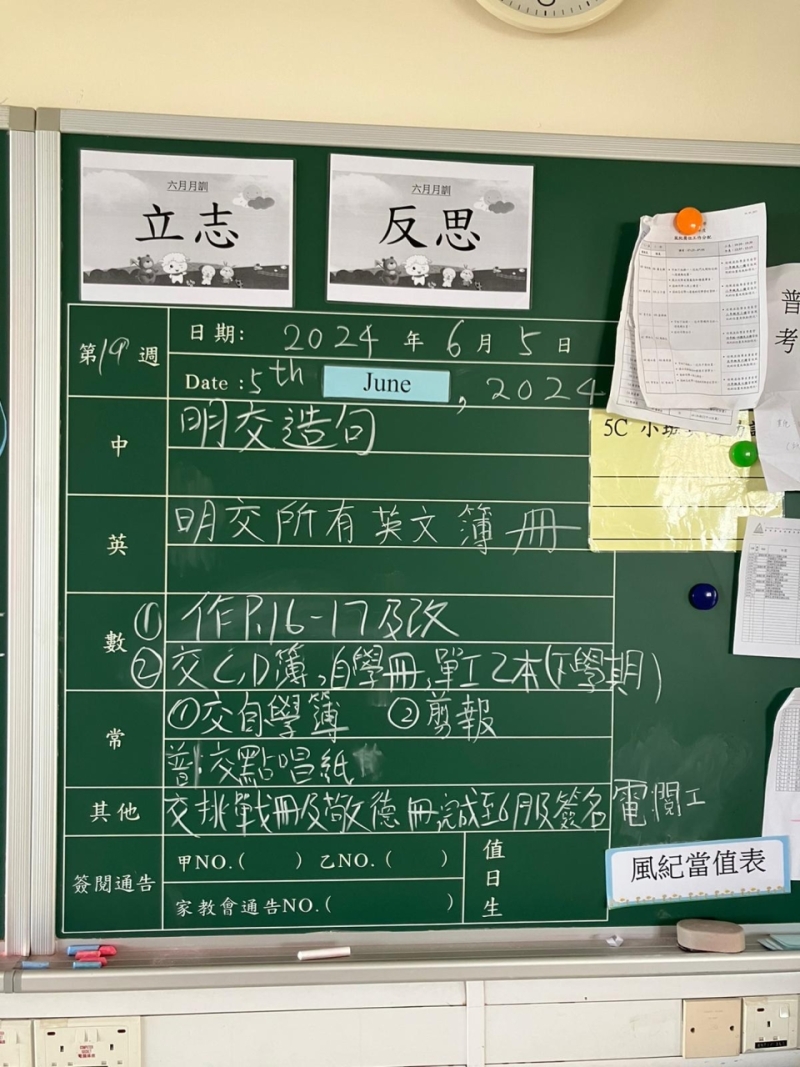 六月月訓
立志
六月月訓
反思
第19週
日期: 2024 年 6 月 5 日
Date : 5th June, 2024
中
明交造句
英
明交所有英文簿冊
數
① 作P.16-17及改
② 交C,D簿,自學冊,單工乙本(下學期)
常
①交自學簿 ②剪報
普:交點唱紙
其他
交挑戰冊及敬德冊完成至6月及簽名 電閱工
簽閱通告
甲NO.( ) 乙NO.( )
家教會通告NO.( )
值日生
普
考
5C 小班
風紀當值表